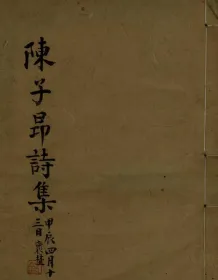 陳子昂詩集
甲辰四月十
三日